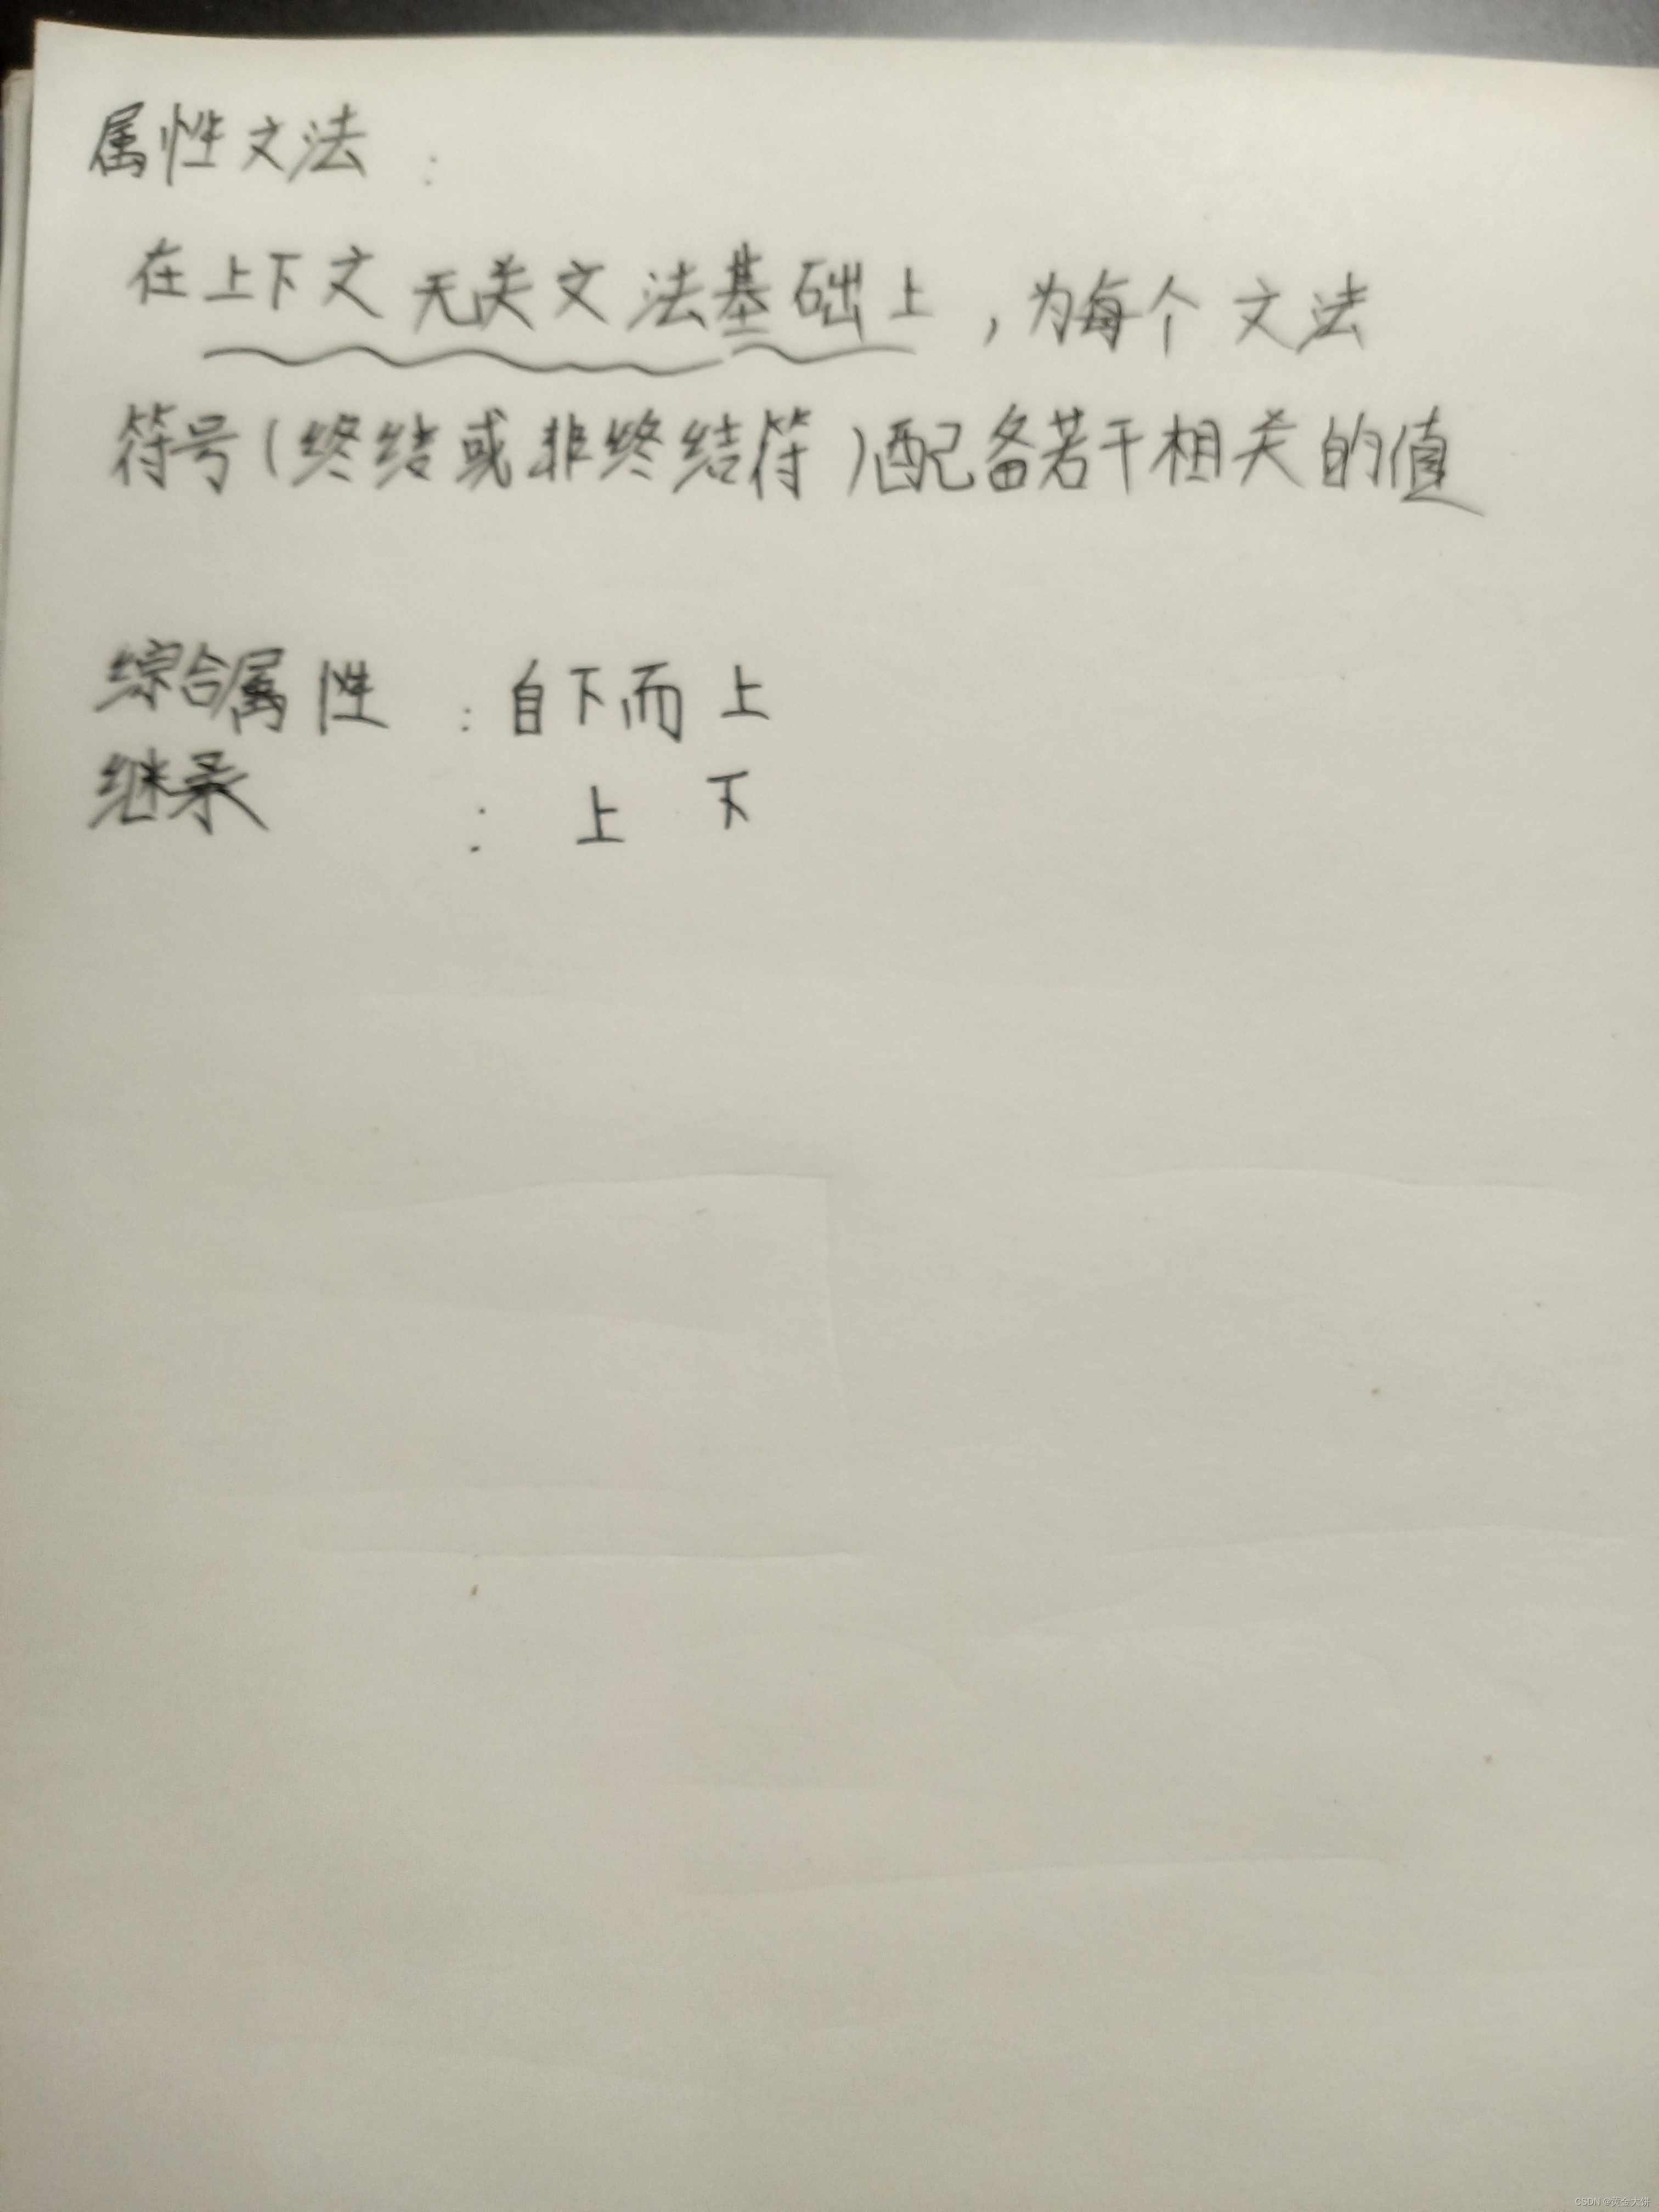 属性文法：
在上下文无关文法基础上，为每个文法
符号(终结或非终结符)配备若干相关的值
综合属性：自下而上
继承：上 下
CSDN @黄金大饼